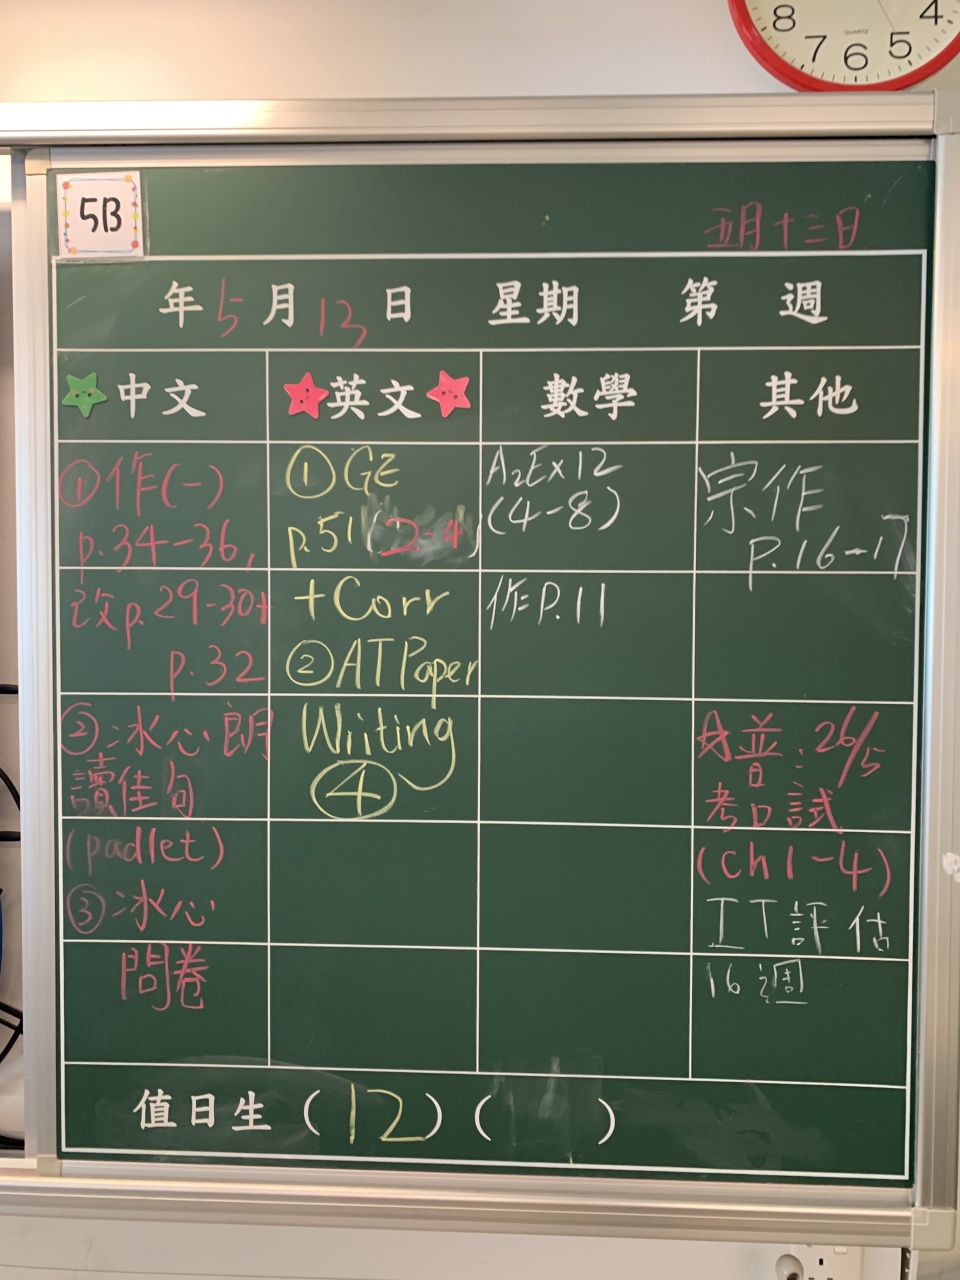 8 7 6 5 4
QUARTZ
5B
五月十三日
年 5 月 13 日 星期 第 週
中文 英文 數學 其他
①作(一)
p.34-36,
改p.29-30+
p.32
②冰心朗
讀佳句
(padlet)
③冰心
問卷
①GE
p.51(2-4)
+Corr
②AT Paper
Wriiting
④
A2Ex12
(4-8)
作P.11
宗作
p.16-17
普:26/5
考口試
(ch1-4)
IT評估
16週
值日生(12)( )